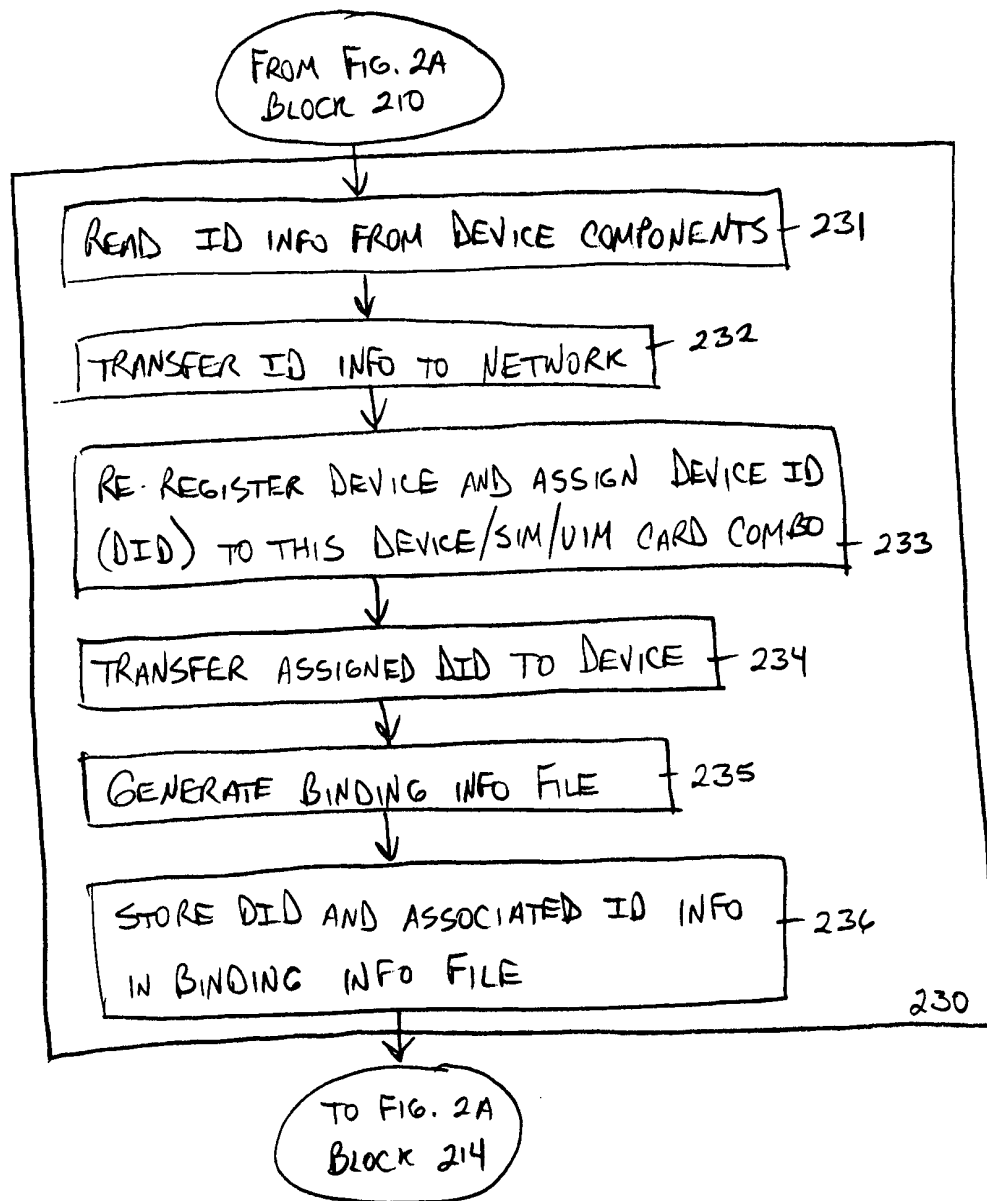 FROM FIG. 2A
BLOCK 210
READ ID INFO FROM DEVICE COMPONENTS
231
TRANSFER ID INFO TO NETWORK
232
RE-REGISTER DEVICE AND ASSIGN DEVICE ID
(DID) TO THIS DEVICE/SIM/UIM CARD COMBO
233
TRANSFER ASSIGNED DID TO DEVICE
234
GENERATE BINDING INFO FILE
235
STORE DID AND ASSOCIATED ID INFO
IN BINDING INFO FILE
236
230
TO FIG. 2A
BLOCK 214